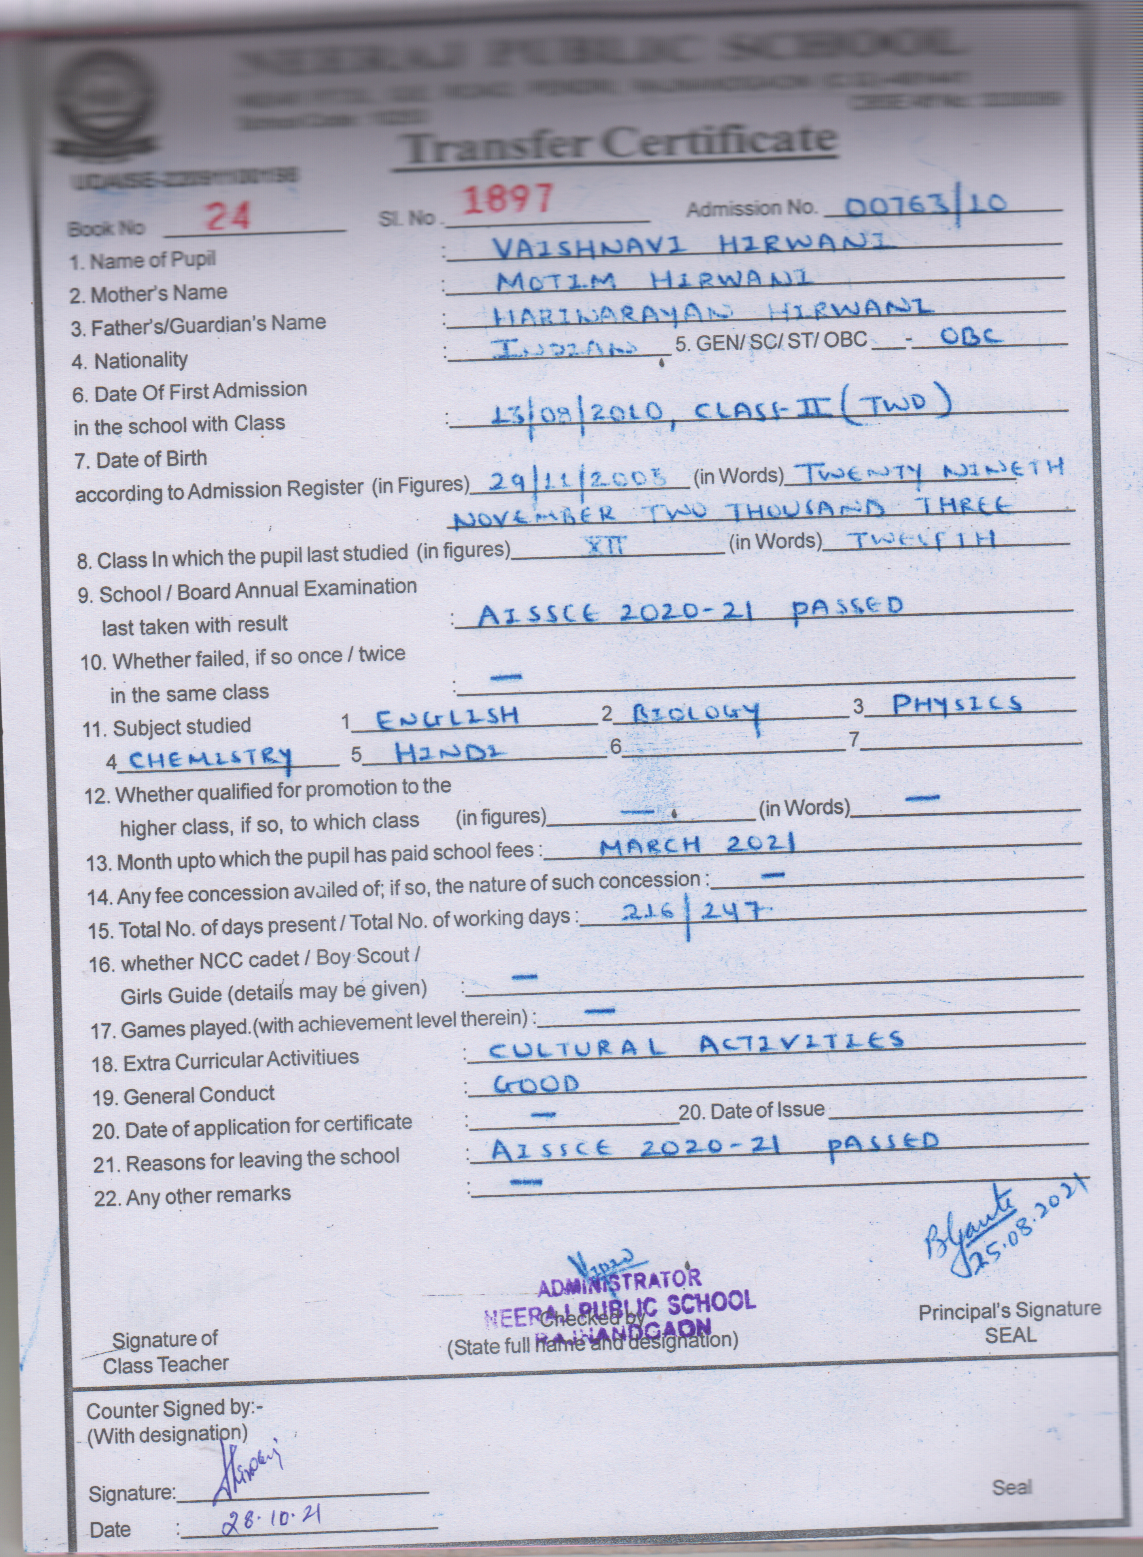 NEERAJ PUBLIC SCHOOL
Transfer Certificate
Book No 24 Sl. No. 1897 Admission No. 00763/10
1. Name of Pupil : VAISHNAVI HIRWANI
2. Mother's Name : MOTIM HIRWANI
3. Father's/Guardian's Name : HARINARAYAN HIRWANI
4. Nationality : INDIAN 5. GEN/ SC/ ST/ OBC - OBC
6. Date Of First Admission
in the school with Class : 13/08/2010, CLASS-II (TWO)
7. Date of Birth
according to Admission Register (in Figures) 29/11/2003 (in Words) TWENTY NINETH
NOVEMBER TWO THOUSAND THREE
8. Class In which the pupil last studied (in figures) XII (in Words) TWELFTH
9. School / Board Annual Examination
last taken with result : AISSCE 2020-21 PASSED
10. Whether failed, if so once / twice
in the same class : —
11. Subject studied 1 ENGLISH 2 BIOLOGY 3 PHYSICS
4 CHEMISTRY 5 HINDI 6 7
12. Whether qualified for promotion to the
higher class, if so, to which class (in figures) — (in Words) —
13. Month upto which the pupil has paid school fees : MARCH 2021
14. Any fee concession availed of; if so, the nature of such concession : —
15. Total No. of days present / Total No. of working days : 216/247
16. whether NCC cadet / Boy Scout /
Girls Guide (details may be given) : —
17. Games played.(with achievement level therein) : —
18. Extra Curricular Activitiues : CULTURAL ACTIVITIES
19. General Conduct : GOOD
20. Date of application for certificate : — 20. Date of Issue
21. Reasons for leaving the school : AISSCE 2020-21 PASSED
22. Any other remarks : —
25.08.2021
ADMINISTRATOR
NEERAJ PUBLIC SCHOOL
RAJNANDGAON
Signature of
Class Teacher
Checked by
(State full name and designation)
Principal's Signature
SEAL
Counter Signed by:-
(With designation)
Signature:
Seal
Date : 28.10.21